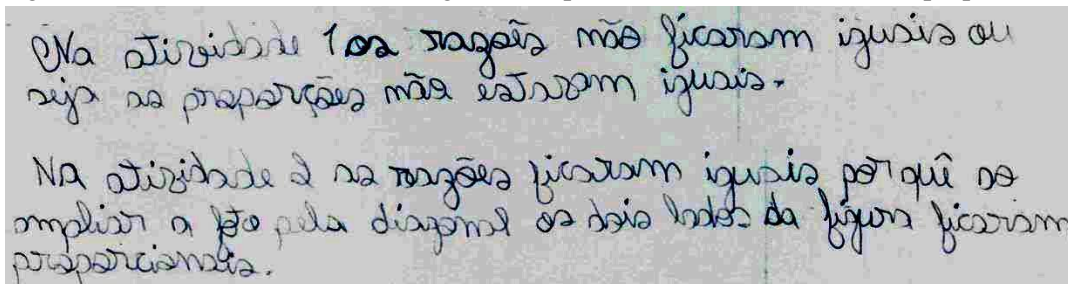 Na atividade 1 as razões não ficaram iguais ou
seja as proporções não estavam iguais.
Na atividade 2 as razões ficaram iguais por quê ao
ampliar a foto pela diagonal os dois lados da figura ficaram
proporcionais.